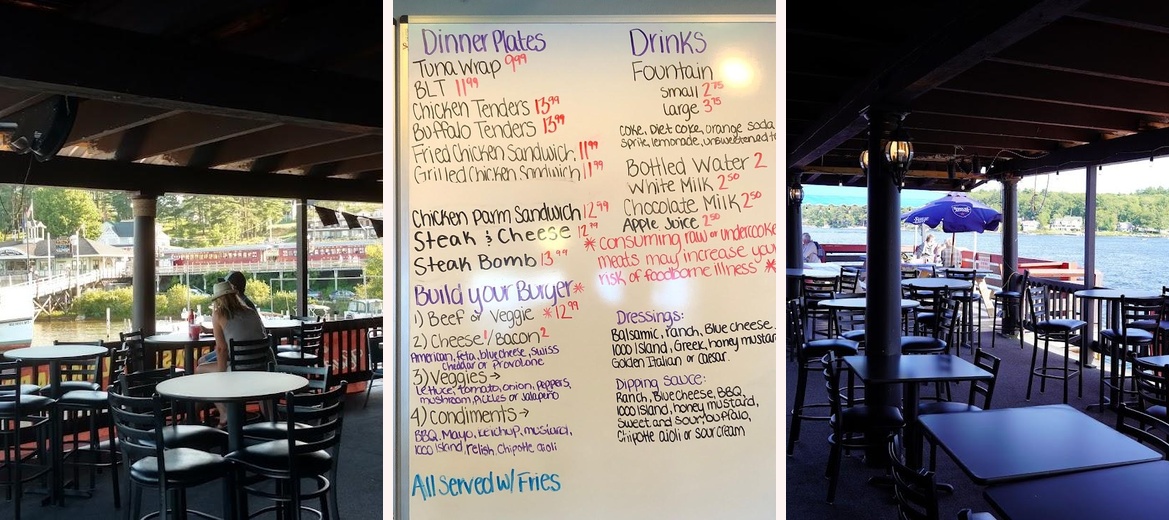 Dinner Plates
Tuna Wrap 9⁹⁹
BLT 11⁹⁹
Chicken Tenders 13⁹⁹
Buffalo Tenders 13⁹⁹
Fried Chicken Sandwich 11⁹⁹
Grilled Chicken Sandwich 11⁹⁹
Chicken Parm Sandwich 12⁹⁹
Steak & Cheese 12⁹⁹
Steak Bomb 13⁹⁹
Build your Burger*
1) Beef or Veggie *12⁹⁹
2) Cheese¹/Bacon²
American, feta, bluecheese, swiss
cheddar or provolone
3) Veggies →
lettuce, tomato, onion, peppers,
mushroom, pickles or jalapeño
4) Condiments →
BBQ, Mayo, ketchup, mustard,
1000 island, relish, Chipotle aioli
All Served w/ Fries
Drinks
Fountain
Small 2⁷⁵
large 3⁷⁵
Coke, Diet coke, orange soda
Sprite, lemonade, unsweetened
Bottled Water 2
White Milk 2⁵⁰
Chocolate Milk 2⁵⁰
Apple Juice 2⁵⁰
* Consuming raw or undercooke
meats may increase your
risk of foodborne illness *
Dressings:
Balsamic, ranch, Blue cheese,
1000 Island, Greek, honey mustar
Golden Italian or Caesar.
Dipping Sauce:
Ranch, Blue Cheese, BBQ,
1000 island, honey mustard,
Sweet and Sour, buffalo,
Chipotle aioli or sour cream